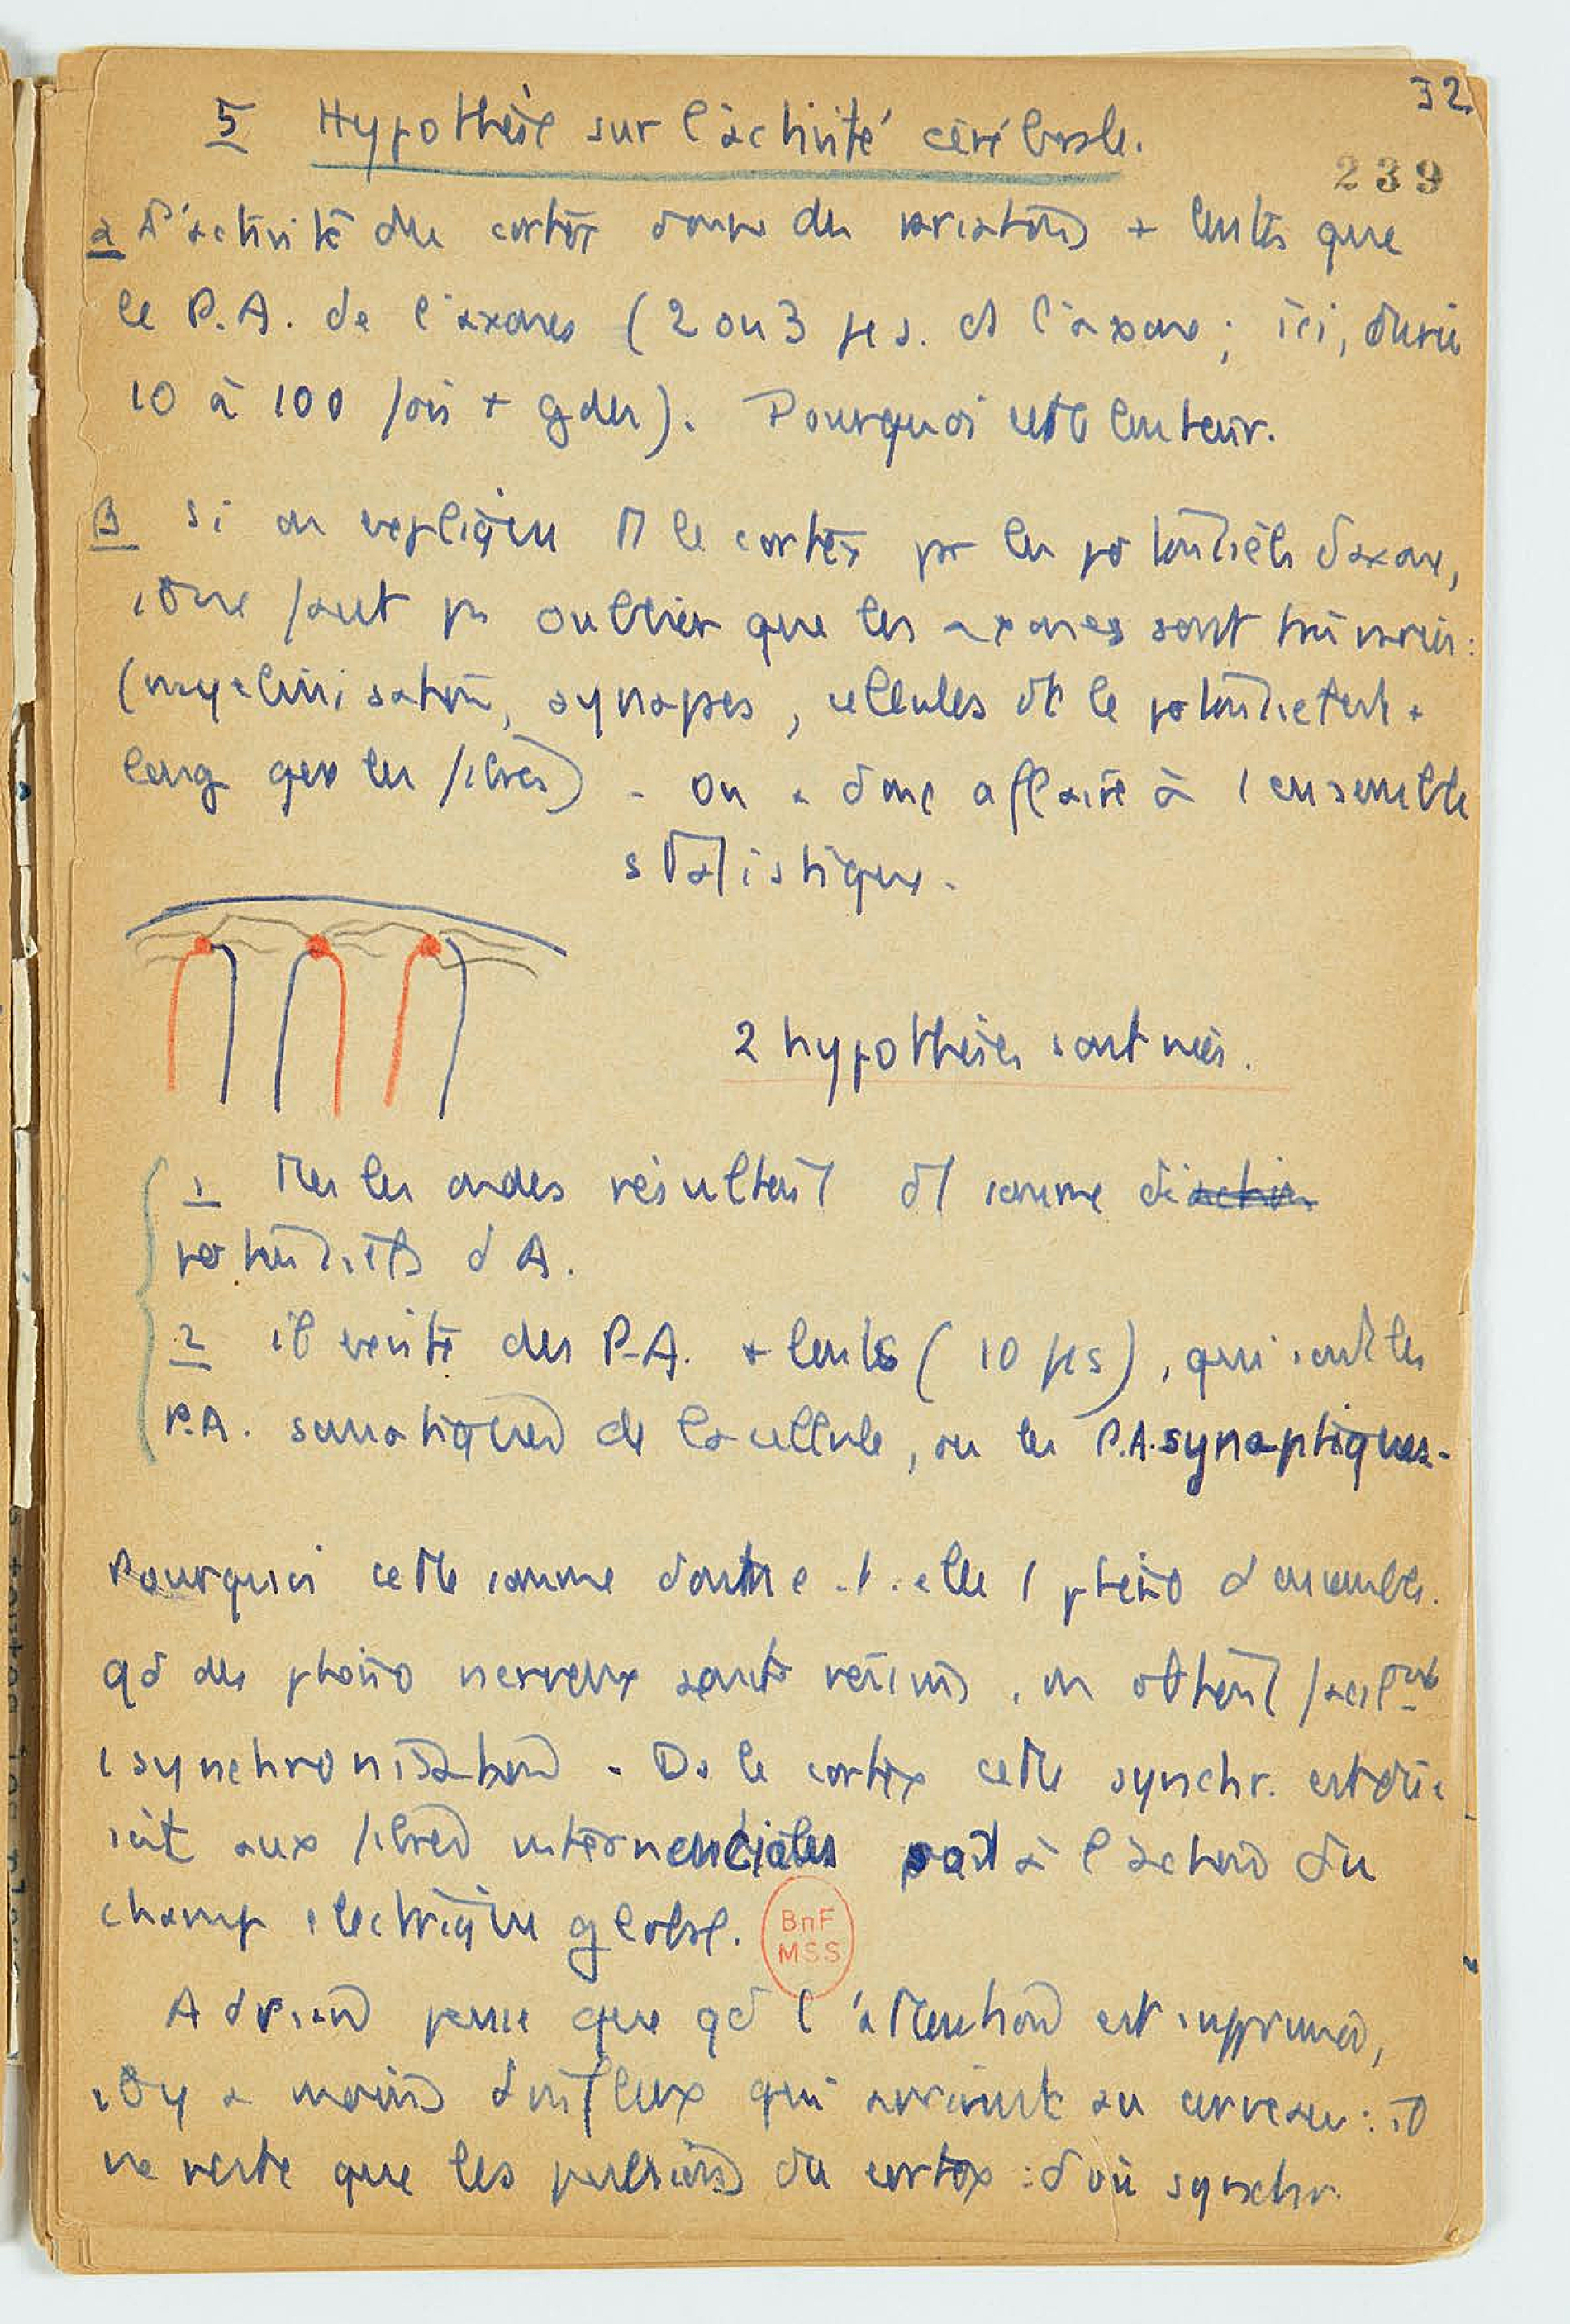 32
5 Hypothèse sur l'activité cérébrale.
239
α L'activité du cortex donne des variations + lentes que
le P.A. de l'axones (2 ou 3 μs. ds l'axone ; ici, durée
10 à 100 fois + gdes). Pourquoi cette lenteur.
β si on explique le cortex pr les potentiels d'axone,
il ne faut ps oublier que les axones sont très variés :
(myélinisation, synapses, cellules dt le potentiel est +
long que les fibres) - on a donc affaire à 1 ensemble
statistique.
2 hypothèses sont nées.
1 Ttes les ondes résultent d'1 somme d'action
potentiels d'A.
2 il existe des P.A. + lents (10 μs), qui sont les
P.A. somatiques de la cellule, ou les P.A. synaptiques.
Pourquoi cette somme donne-t-elle 1 phéno d'ensemble.
qd des phéno nerveux sont réunis, on obtient facilemt
1 synchronisation - Ds le cortex cette synchr. est due
soit aux fibres internenciales soit à l'action du
champ électrique global.
BnF
MSS
Adrian pense que qd l'attention est supprimée,
il y a moins d'influx qui arrivent au cerveau : il
ne reste que les pulsions du cortex : d'où synchr.